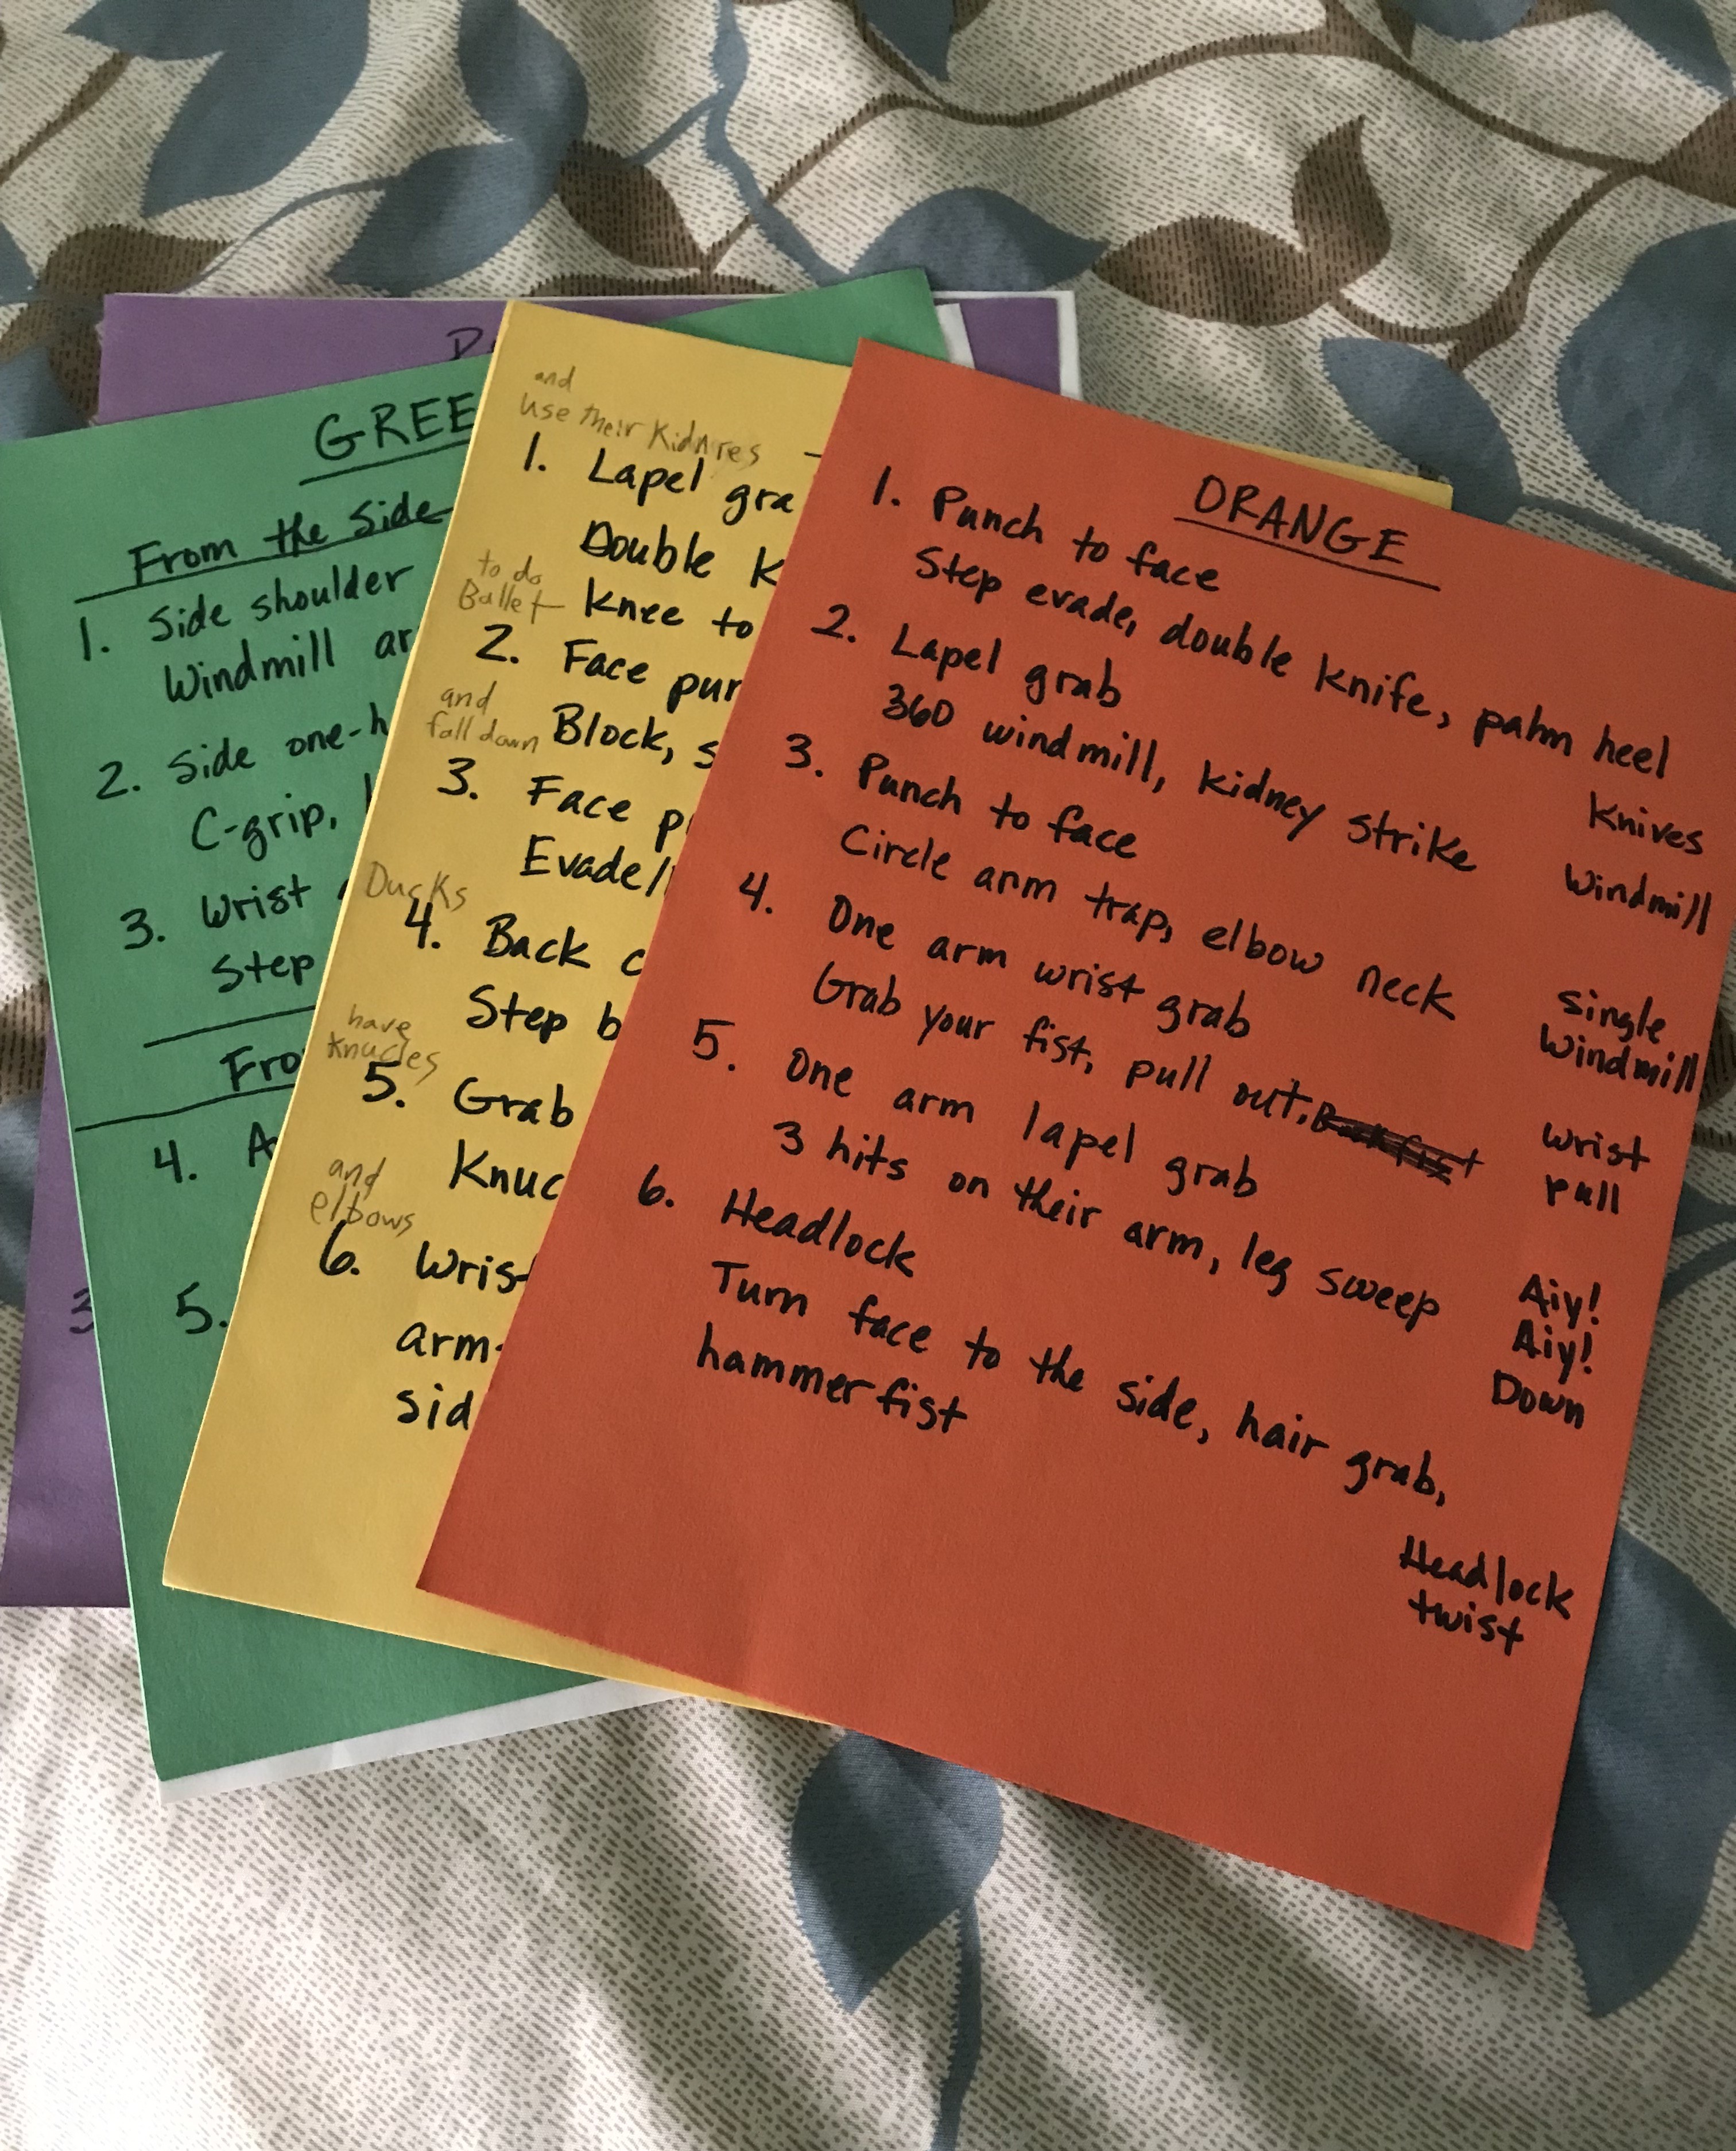 GREE
From the Side
1. Side shoulder
Windmill ar
2. Side one-h
C-grip,
3. Wrist
Step
Fro
4. A
5.
3
and
use their Kidnires
1. Lapel gra
Double K
to do
Ballet
Knee to
2. Face pun
and
fall down
Block, s
3. Face p
Evade/
Ducks
4. Back c
Step b
have
Knucles
5. Grab
Knuc
and
elbows
6. Wrist
arm-
sid
ORANGE
1. Punch to face
Step evade, double knife, palm heel
Knives
2. Lapel grab
360 windmill, kidney strike
Windmill
3. Punch to face
Circle arm trap, elbow neck
Single
Windmill
4. One arm wrist grab
Grab your fist, pull out.
Wrist
Pull
5. One arm lapel grab
3 hits on their arm, leg sweep
Aiy!
Aiy!
Down
6. Headlock
Turn face to the side, hair grab,
hammerfist
Headlock
twist